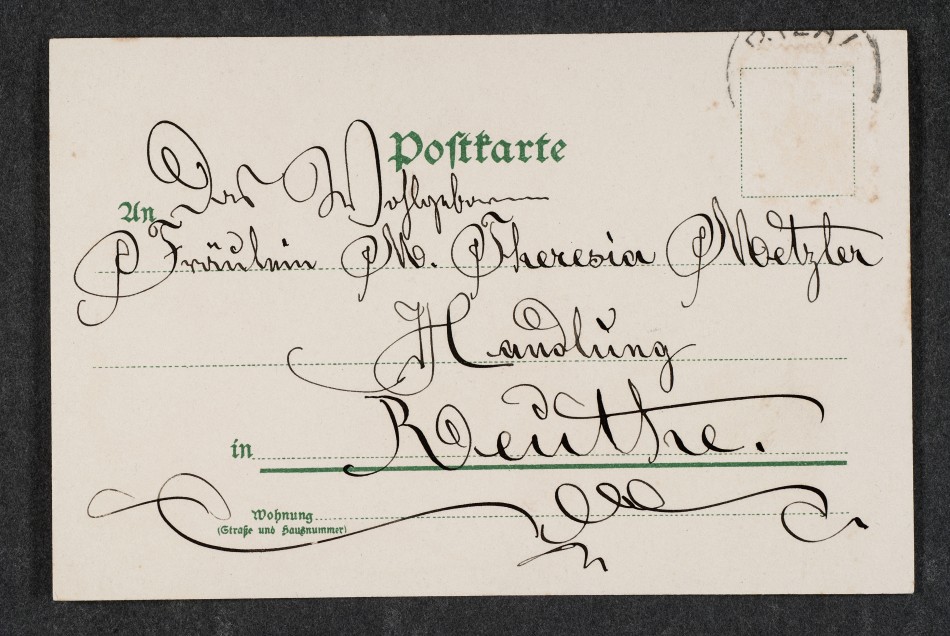 Postkarte
Der Wohlgeboren
An
Fräulein M. Theresia Metzler
Handlung
in Reuthe.
Wohnung
(Straße und Hausnummer)